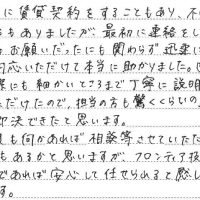 に賃貸契約をすることもあり、不
もありましたが、最初に連絡をし
お願いだったにも関わらず迅速に
対応いただけて本当に助かりました。
際にも細かいところまで丁寧に説明
ただけたので、担当の方も驚くくらいの
即決できたと思います。
も何かあれば相談等させていただ
もあるかと思いますが、フロンティア技
であれば安心して任せられると感じ
す。